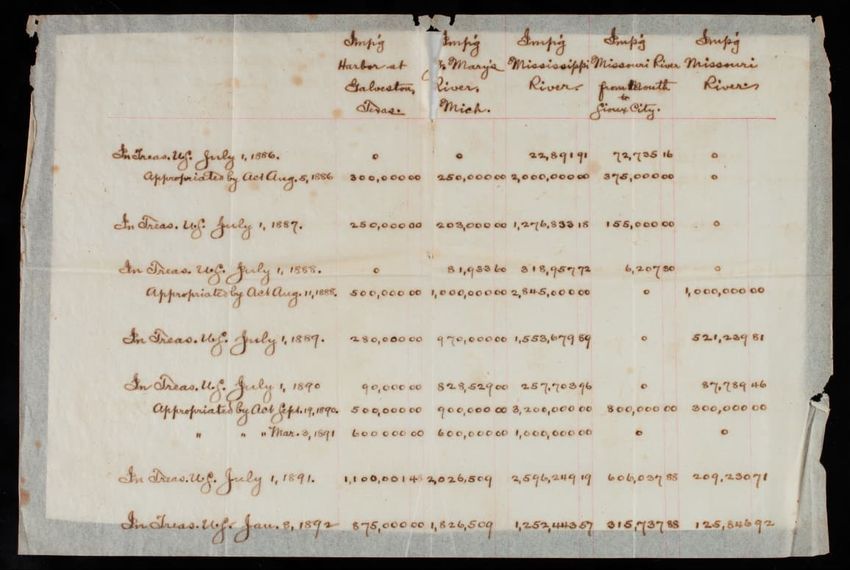 Impg Impg Impg Impg Impg
Harbor at St Mary's Mississippi Missouri River Missouri
Galveston, River, River. from Mouth River.
Texas. Mich. to
Sioux City.
In Treas. U.S. July 1, 1886. 0 0 22,891 91 72,735 16 0
Appropriated by Act Aug. 5, 1886 300,000 00 250,000 00 2,000,000 00 375,000 00 0
In Treas. U.S. July 1, 1887. 250,000 00 203,000 00 1,276,833 18 155,000 00 0
In Treas. U.S. July 1, 1888. 0 81,933 60 318,957 72 6,207 30 0
Appropriated by Act Aug. 11, 1888. 500,000 00 1,000,000 00 2,845,000 00 0 1,000,000 00
In Treas. U.S. July 1, 1889. 280,000 00 970,000 00 1,553,679 89 0 521,239 81
In Treas. U.S. July 1, 1890 90,000 00 828,529 00 257,703 96 0 87,789 46
Appropriated by Act Sept. 19, 1890. 500,000 00 900,000 00 3,200,000 00 800,000 00 300,000 00
" " " Mar. 3, 1891 600 000 00 600,000 00 1,000,000 00 0 0
In Treas. U.S. July 1, 1891. 1,100,001 48 2,026,509 2,596,249 19 606,037 88 209,230 71
In Treas. U.S. Jan. 8, 1892 875,000 00 1,826,509 1,252,443 57 315,737 88 125,846 92